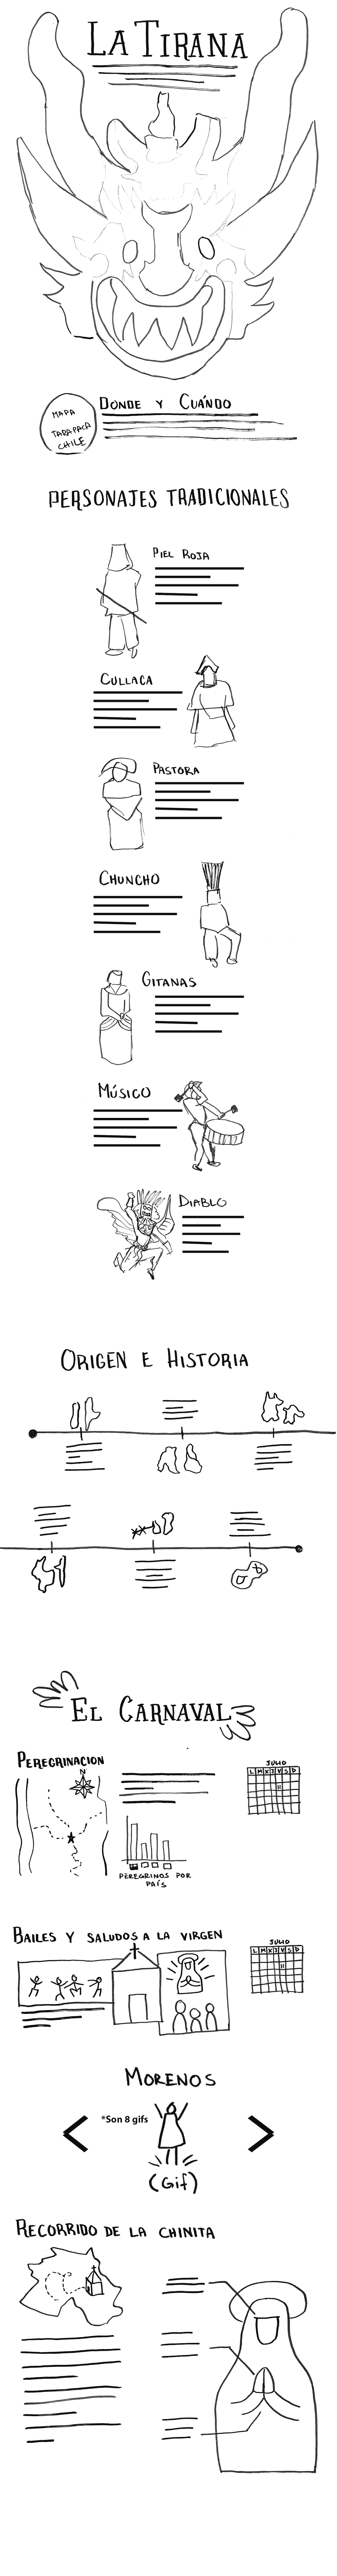 LA TIRANA
DÓNDE Y CUÁNDO
MAPA
TARAPACA
CHILE
PERSONAJES TRADICIONALES
PIEL ROJA
CULLACA
PASTORA
CHUNCHO
GITANAS
MÚSICO
DIABLO
ORIGEN E HISTORIA
EL CARNAVAL
PEREGRINACION
N
JULIO
L M X J V S D
11
PEREGRINOS POR
PAÍS
BAILES Y SALUDOS A LA VIRGEN
JULIO
L M X J V S D
11
MORENOS
*Son 8 gifs
(Gif)
RECORRIDO DE LA CHINITA